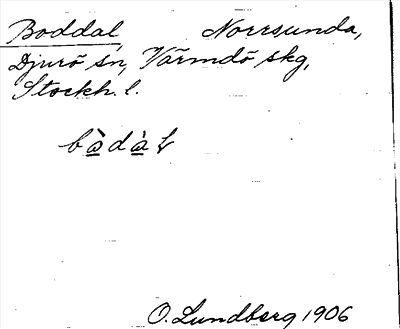 Boddal Norrsunda,
Djurö sn, Värmdö skg,
Stockh. l.
O. Lundberg 1906